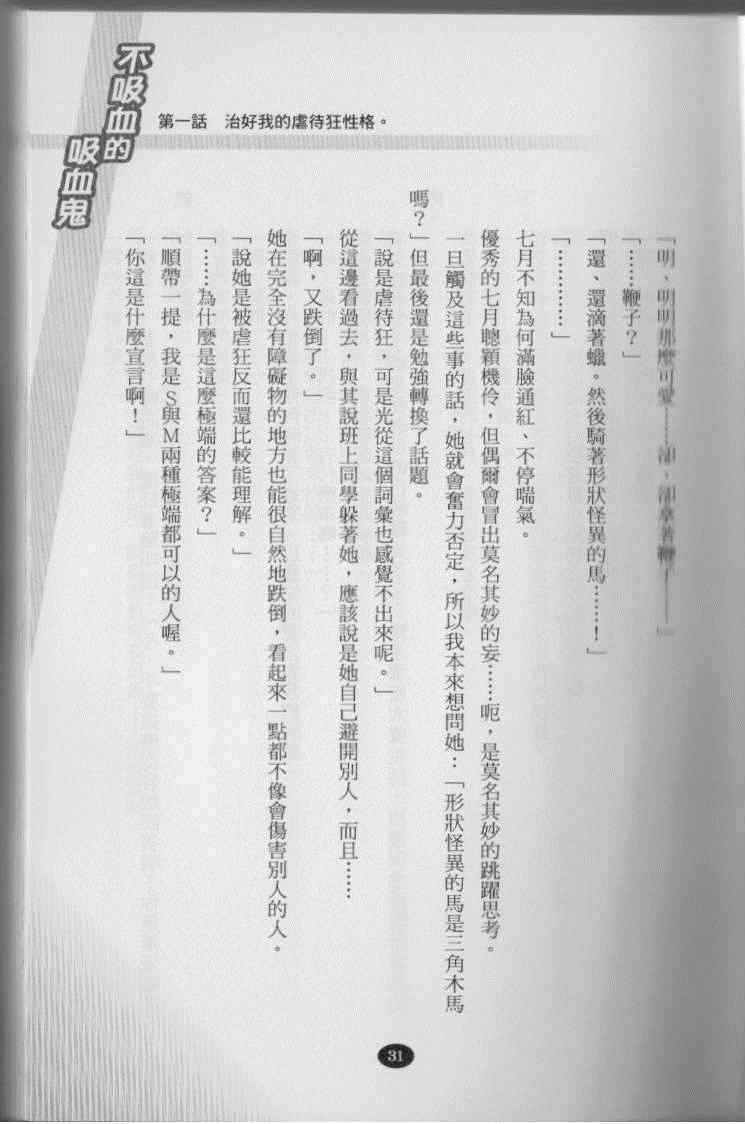 不吸血的
吸血鬼
第一話　治好我的虐待狂性格。
「明、明明那麼可愛……卻、卻拿著鞭……」
「……鞭子？」
「還、還滴著蠟。然後騎著形狀怪異的馬……！」
「…………」
七月不知為何滿臉通紅、不停喘氣。
優秀的七月聰穎機伶，但偶爾會冒出莫名其妙的妄……呃，是莫名其妙的跳躍思考。
一旦觸及這些事的話，她就會奮力否定，所以我本來想問她：「形狀怪異的馬是三角木馬
嗎？」但最後還是勉強轉換了話題。
「說是虐待狂，可是光從這個詞彙也感覺不出來呢。」
從這邊看過去，與其說班上同學躲著她，應該說是她自己避開別人，而且……
「啊，又跌倒了。」
她在完全沒有障礙物的地方也能很自然地跌倒，看起來一點都不像會傷害別人的人。
「說她是被虐狂反而還比較能理解。」
「……為什麼是這麼極端的答案？」
「順帶一提，我是S與M兩種極端都可以的人喔。」
「你這是什麼宣言啊！」
31